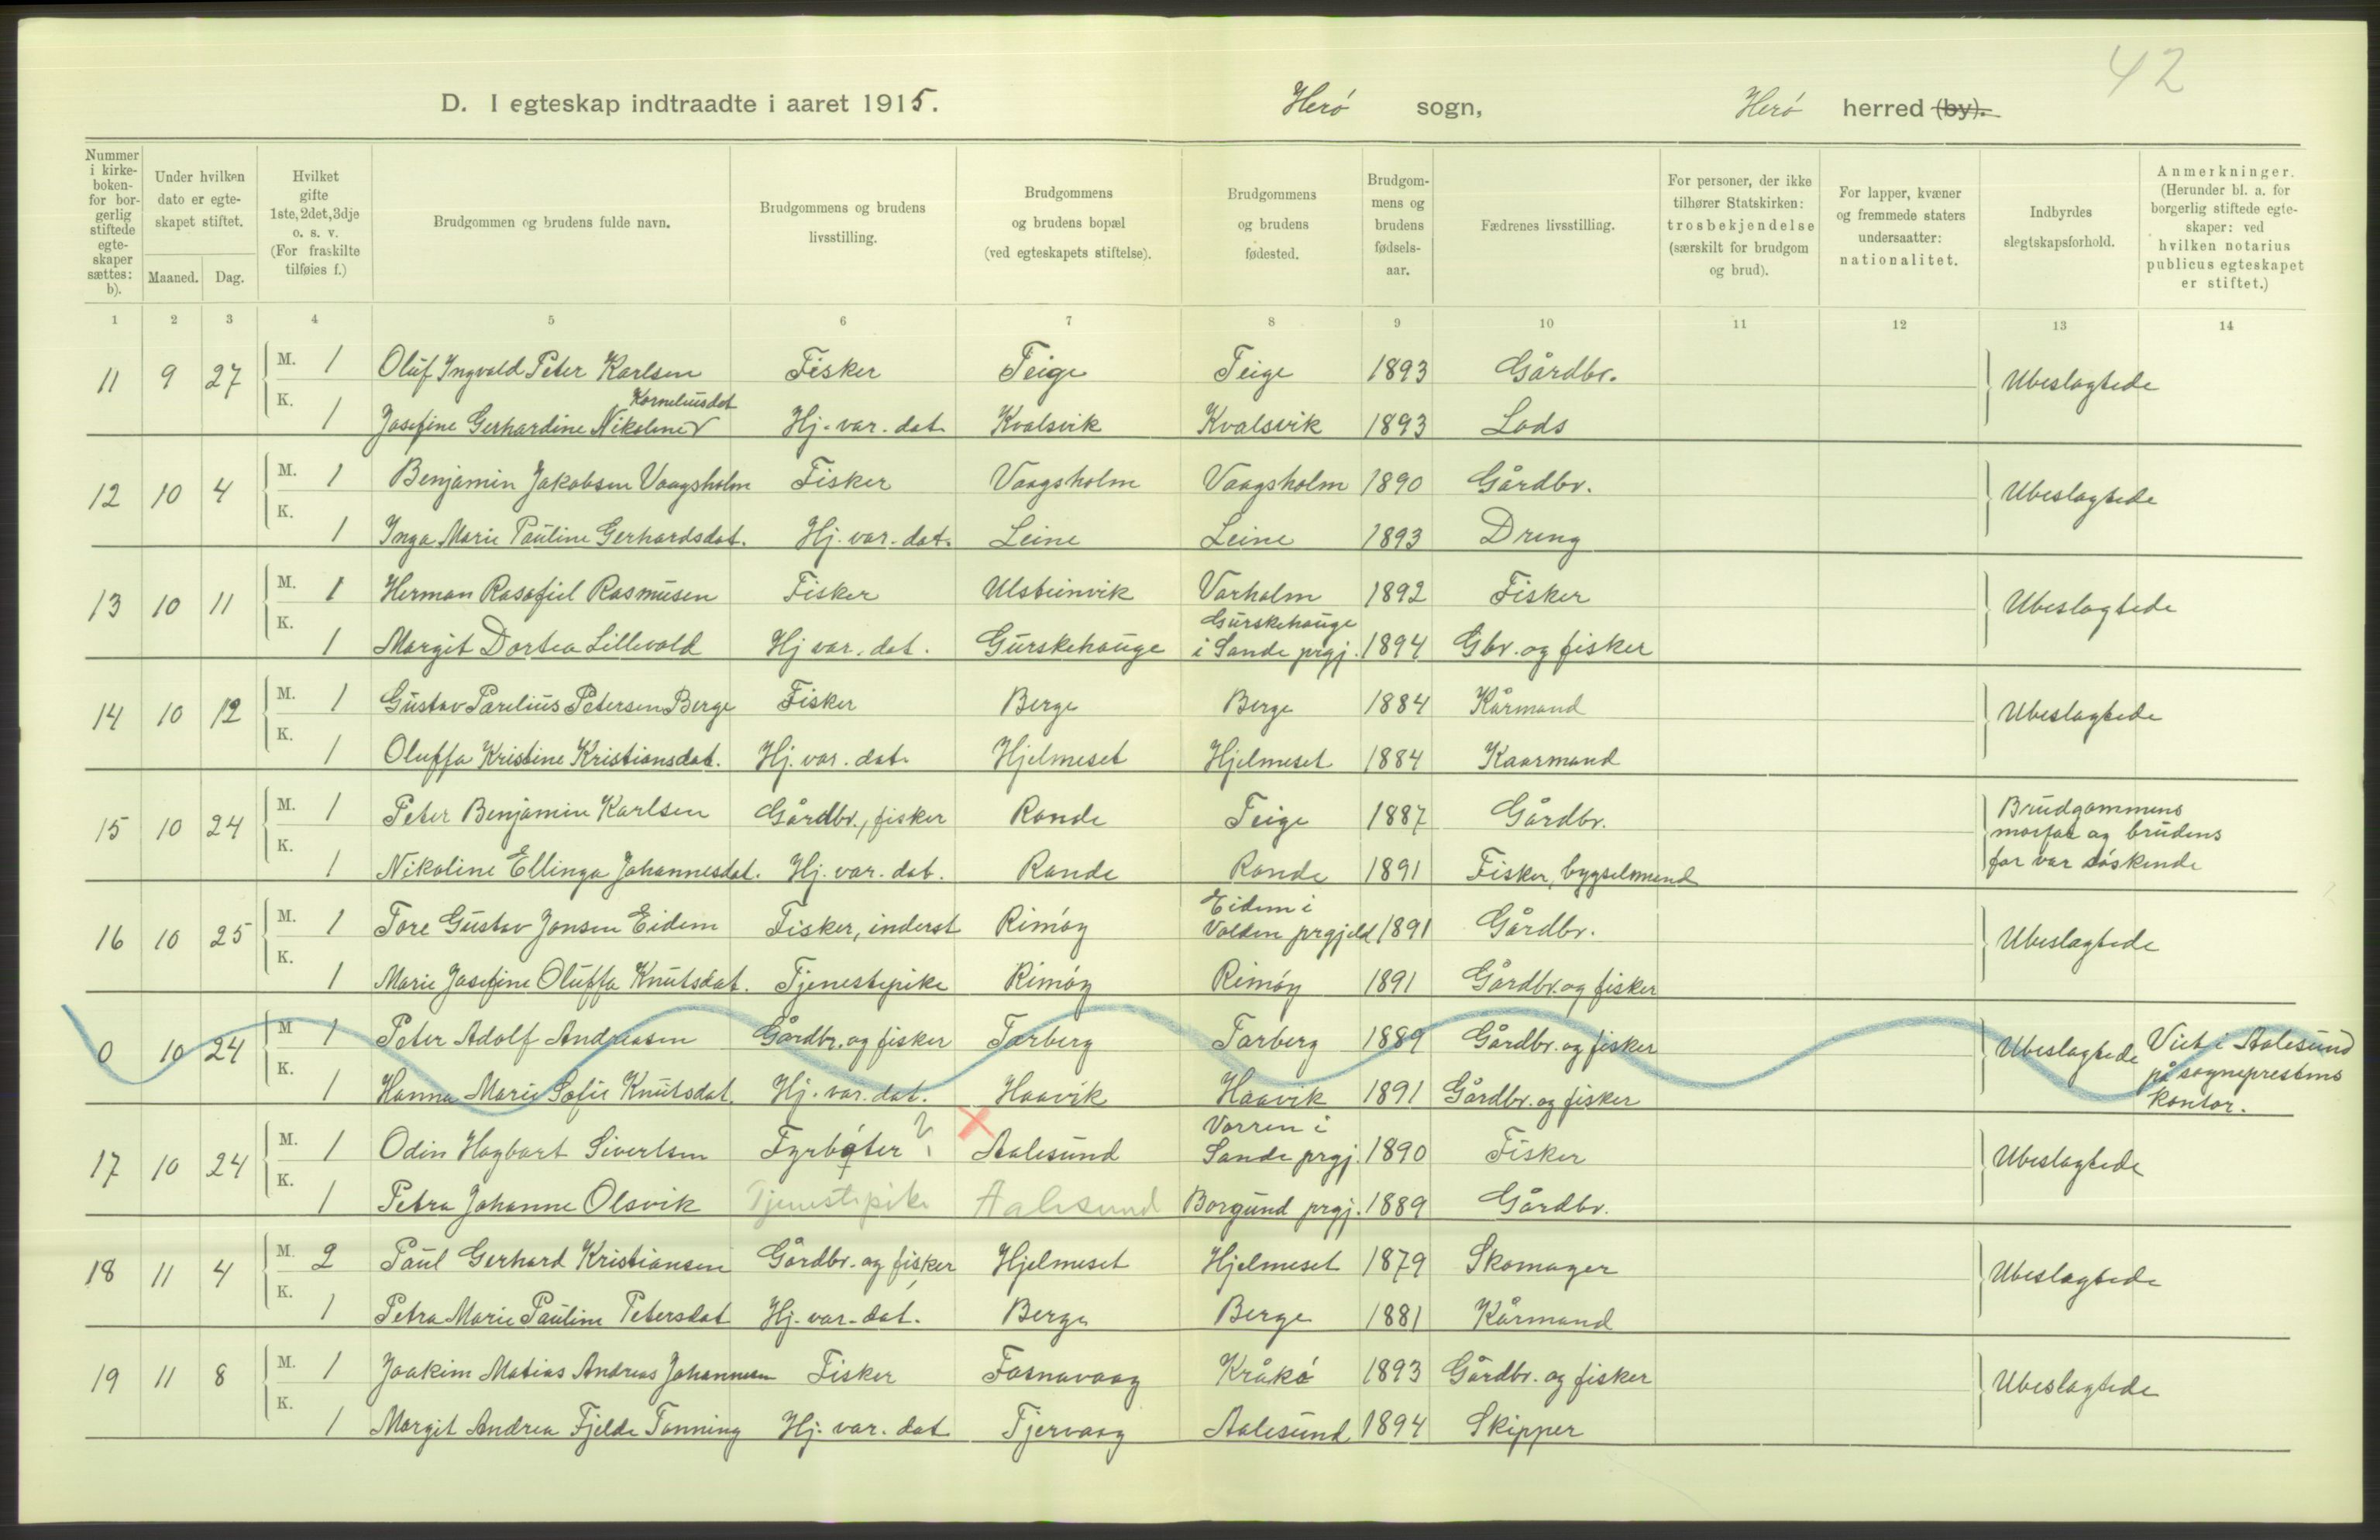 42
D. I egteskap indtraadte i aaret 1915. Herø sogn, Herø herred (by).
Nummer i kirkeboken- for borgerlig stiftede egteskaper sættes: b).
Under hvilken dato er egteskapet stiftet.
Maaned. Dag.
Hvilket gifte 1ste, 2det, 3dje o. s. v. (For fraskilte tilføies f.)
Brudgommen og brudens fulde navn.
Brudgommens og brudens livsstilling.
Brudgommens og brudens bopæl (ved egteskapets stiftelse).
Brudgommens og brudens fødested.
Brudgommens og brudens fødselsaar.
Fædrenes livsstilling.
For personer, der ikke tilhører Statskirken: trosbekjendelse (særskilt for brudgom og brud).
For lapper, kvæner og fremmede staters undersaatter: nationalitet.
Indbyrdes slegtskapsforhold.
Anmerkninger. (Herunder bl. a. for borgerlig stiftede egteskaper: ved hvilken notarius publicus egteskapet er stiftet.)
1 2 3 4 5 6 7 8 9 10 11 12 13 14
11 9 27 M. 1 Oluf Ingvald Peter Karlsen Fisker Teige Teige 1893 Gårdbr. Ubeslagtede
Korneliusdat
K. 1 Josefine Gerhardine Nikoline Hj. var. dat. Kvalsvik Kvalsvik 1893 Lods
12 10 4 M. 1 Benjamin Jakobsen Vaagsholm Fisker Vaagsholm Vaagsholm 1890 Gårdbr. Ubeslagtede
K. 1 Inga Marie Pauline Gerhardsdat. Hj. var. dat. Leine Leine 1893 Dreng
13 10 11 M. 1 Herman Rasafiel Rasmusen Fisker Ulsteinvik Varholm 1892 Fisker Ubeslagtede
Gurskehauge
K. 1 Margit Dortea Lillevold Hj var. dat. Gurskehauge i Sande prgj. 1894 Gbr. og fisker
14 10 12 M. 1 Gustav Parelius Petersen Berge Fisker Berge Berge 1884 Kårmand Ubeslagtede
K. 1 Oluffa Kristine Kristiansdat. Hj. var. dat. Hjelmeset Hjelmeset 1884 Kaarmand
15 10 24 M. 1 Peter Benjamin Karlsen Gårdbr., fisker Rande Teige 1887 Gårdbr. Brudgommens
morfar og brudens
K. 1 Nikoline Ellinga Johannesdat. Hj. var. dat. Rande Rande 1891 Fisker, bygselmand far var søskende
Eidem i
16 10 25 M. 1 Tore Gustav Jonsen Eidem Fisker, inderst Rimøy Volden prgjeld 1891 Gårdbr. Ubeslagtede
K. 1 Marie Josefine Oluffa Knutsdat. Tjenestepike Rimøy Rimøy 1891 Gårdbr. og fisker
0 10 24 M 1 Peter Adolf Andreasen Gårdbr. og fisker Tarberg Tarberg 1889 Gårdbr. og fisker Ubeslagtede Viet i Aalesund
på sogneprestens
K. 1 Hanna Marie Sofie Knutsdat. Hj. var. dat. Haavik Haavik 1891 Gårdbr. og fisker kontor.
Vorren i
17 10 24 M. 1 Odin Hagbart Sivertsen Fyrbøter ? Aalesund Sande prgj. 1890 Fisker Ubeslagtede
K. 1 Petra Johanne Olsvik Tjenestepike Aalesund Borgund prgj. 1889 Gårdbr.
18 11 4 M. 2 Paul Gerhard Kristiansen Gårdbr. og fisker Hjelmeset Hjelmeset 1879 Skomager Ubeslagtede
K. 1 Petra Marie Pauline Petersdat Hj. var. dat. Berge Berge 1881 Kårmand
19 11 8 M. 1 Joakim Matias Andreas Johannesen Fisker Fosnavaag Kråkø 1893 Gårdbr. og fisker Ubeslagtede
K. 1 Margit Andrea Fjelde Tanning Hj. var. dat Tjervaag Aalesund 1894 Skipper